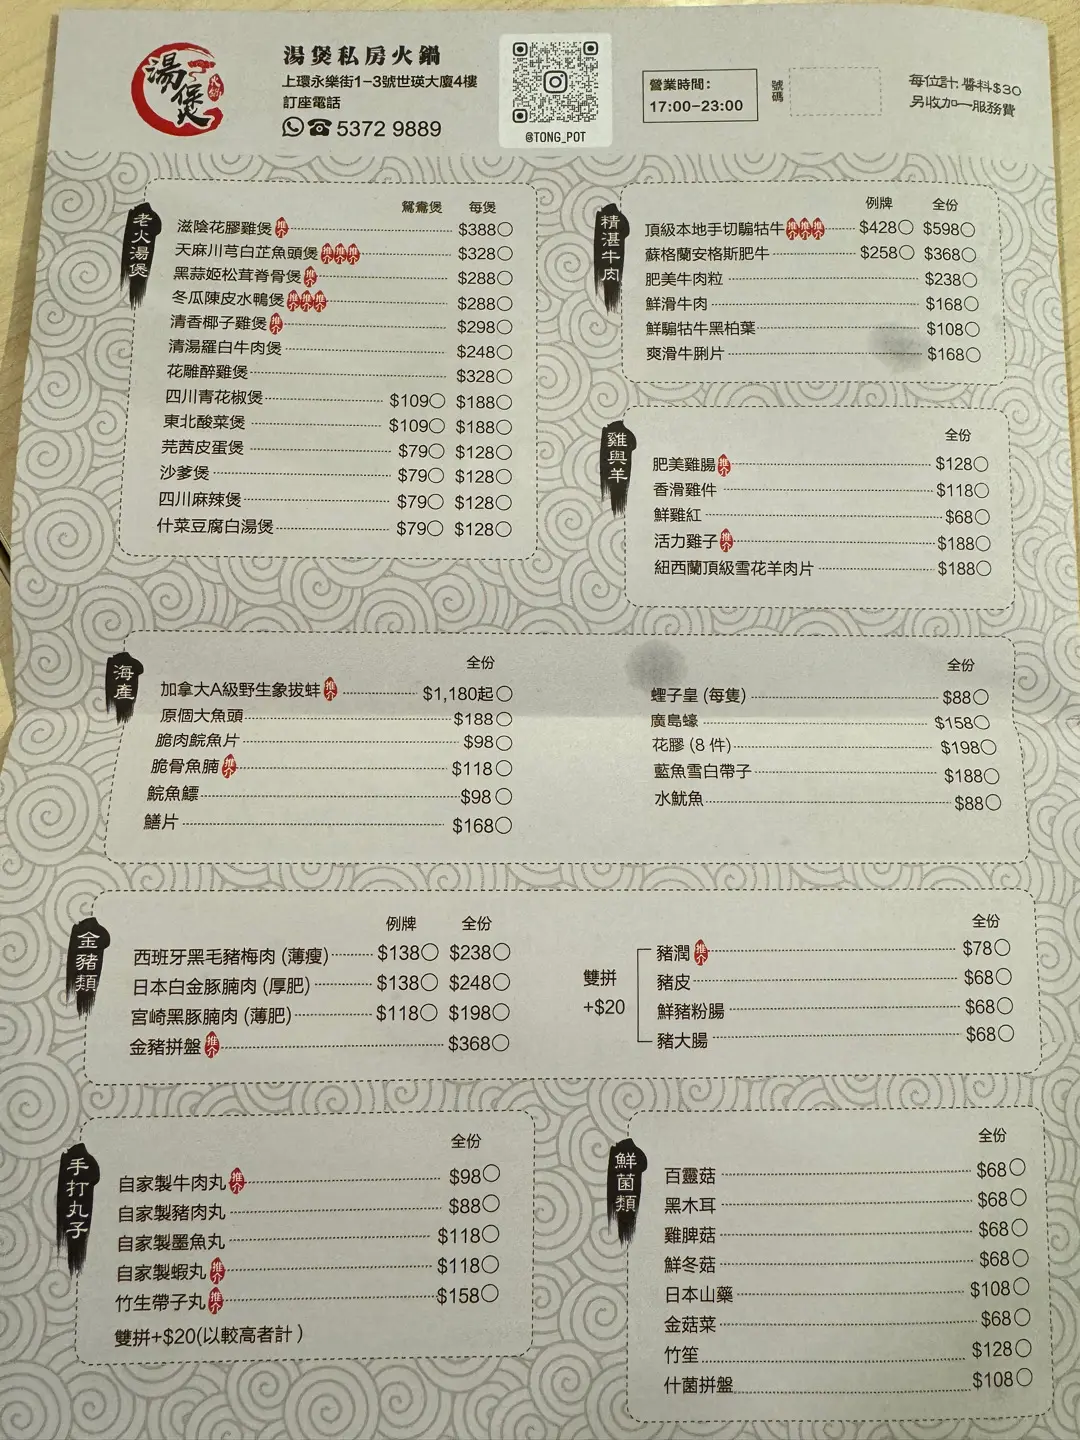 湯煲
火鍋
湯煲私房火鍋
上環永樂街1-3號世瑛大廈4樓
訂座電話
5372 9889
@TONG_POT
營業時間：
17:00-23:00
號碼
每位計 醬料$30
另收加一服務費
老火湯煲
鴛鴦煲 每煲
滋陰花膠雞煲 推介 $388
天麻川芎白芷魚頭煲 推介 推介 推介 $328
黑蒜姬松茸脊骨煲 推介 $288
冬瓜陳皮水鴨煲 推介 推介 推介 $288
清香椰子雞煲 推介 $298
清湯羅白牛肉煲 $248
花雕醉雞煲 $328
四川青花椒煲 $109 $188
東北酸菜煲 $109 $188
芫茜皮蛋煲 $79 $128
沙爹煲 $79 $128
四川麻辣煲 $79 $128
什菜豆腐白湯煲 $79 $128
精湛牛肉
例牌 全份
頂級本地手切騸牯牛 推介 推介 推介 $428 $598
蘇格蘭安格斯肥牛 $258 $368
肥美牛肉粒 $238
鮮滑牛肉 $168
鮮騸牯牛黑柏葉 $108
爽滑牛脷片 $168
雞與羊
全份
肥美雞腸 推介 $128
香滑雞件 $118
鮮雞紅 $68
活力雞子 推介 $188
紐西蘭頂級雪花羊肉片 $188
海產
全份
加拿大A級野生象拔蚌 推介 $1,180起
原個大魚頭 $188
脆肉鯇魚片 $98
脆骨魚腩 推介 $118
鯇魚鰾 $98
鱔片 $168
全份
蟶子皇 (每隻) $88
廣島蠔 $158
花膠 (8 件) $198
藍魚雪白帶子 $188
水魷魚 $88
金豬類
例牌 全份
西班牙黑毛豬梅肉 (薄瘦) $138 $238
日本白金豚腩肉 (厚肥) $138 $248
宮崎黑豚腩肉 (薄肥) $118 $198
金豬拼盤 推介 $368
雙拼
+$20
全份
豬潤 推介 $78
豬皮 $68
鮮豬粉腸 $68
豬大腸 $68
手打丸子
全份
自家製牛肉丸 推介 $98
自家製豬肉丸 $88
自家製墨魚丸 $118
自家製蝦丸 推介 $118
竹生帶子丸 推介 $158
雙拼+$20(以較高者計 )
鮮菌類
全份
百靈菇 $68
黑木耳 $68
雞脾菇 $68
鮮冬菇 $68
日本山藥 $108
金菇菜 $68
竹笙 $128
什菌拼盤 $108